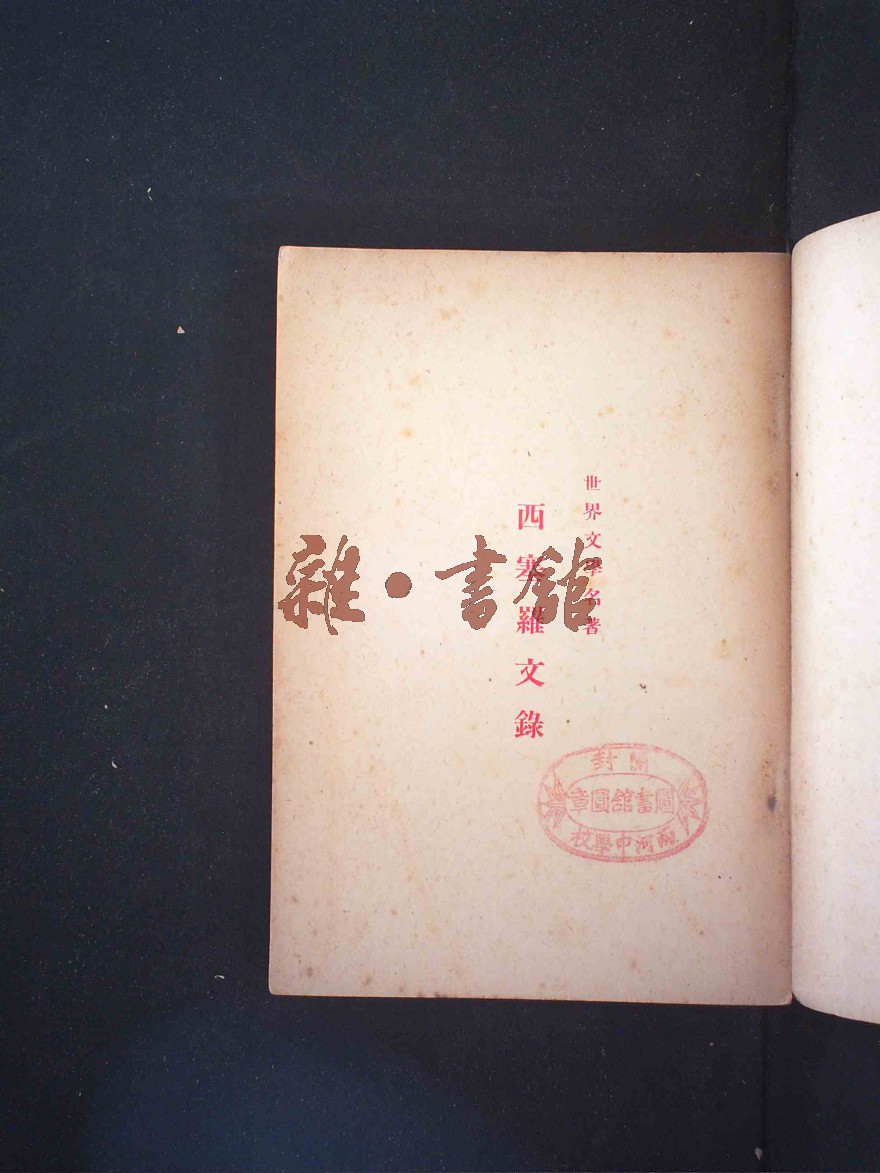 世界文學名著
西塞羅文錄
雜·書館
開封
圖書館圖章
兩河中學校